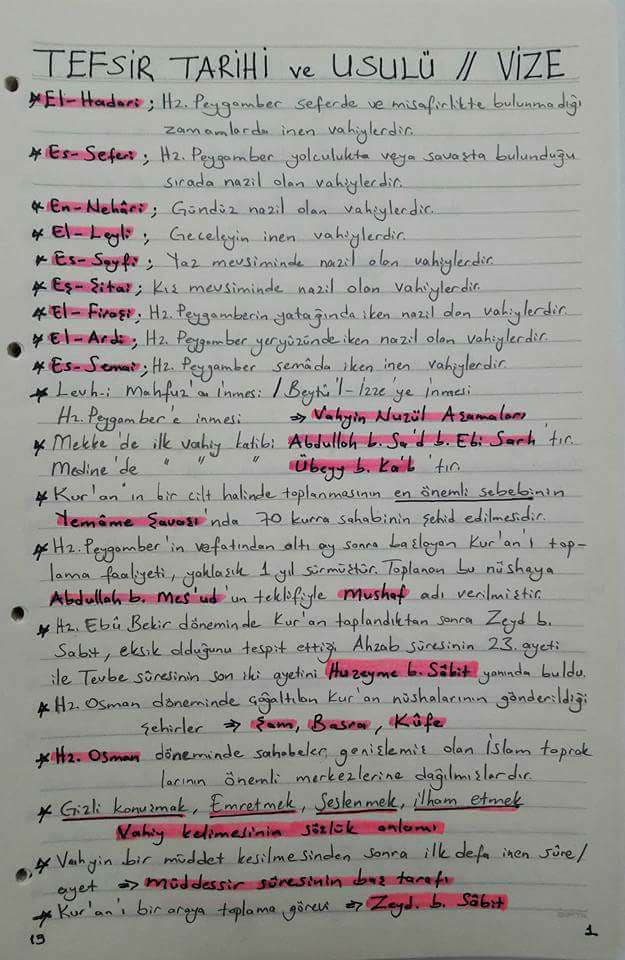 TEFSİR TARİHİ ve USULÜ // VİZE
* El-Hadari; Hz. Peygamber seferde ve misafirlikte bulunmadığı
zamanlarda inen vahiylerdir.
* Es-Seferi; Hz. Peygamber yolculukta veya savaşta bulunduğu
sırada nazil olan vahiylerdir.
* En-Nehâri; Gündüz nazil olan vahiylerdir.
* El-Leyli; Geceleyin inen vahiylerdir.
* Es-Sayfi; Yaz mevsiminde nazil olan vahiylerdir.
* Eş-Şitai; Kış mevsiminde nazil olan vahiylerdir.
* El-Firaşi; Hz. Peygamberin yatağında iken nazil olan vahiylerdir.
* El-Ardi; Hz. Peygamber yeryüzünde iken nazil olan vahiylerdir.
* Es-Semai; Hz. Peygamber semâda iken inen vahiylerdir.
* Levh-i Mahfuz'a inmesi / Beytü'l-İzze'ye inmesi
Hz. Peygamber'e inmesi ⇒ Vahyin Nuzül Aşamaları
* Mekke'de ilk vahiy katibi Abdullah b. Sa'd b. Ebi Sarh'tır.
Medine'de " " " Übeyy b. Ka'b'tır.
* Kur'an'ın bir cilt halinde toplanmasının en önemli sebebinin
Yemâme Savaşı'nda 70 kurra sahabinin şehid edilmesidir.
* Hz. Peygamber'in vefatından altı ay sonra başlayan Kur'an'ı top-
lama faaliyeti, yaklaşık 1 yıl sürmüştür. Toplanan bu nüshaya
Abdullah b. Mes'ud'un teklifiyle Mushaf adı verilmiştir.
* Hz. Ebû Bekir döneminde Kur'an toplandıktan sonra Zeyd b.
Sabit, eksik olduğunu tespit ettiği Ahzab sûresinin 23. ayeti
ile Tevbe sûresinin son iki ayetini Huzeyme b. Sâbit yanında buldu.
* Hz. Osman döneminde çoğaltılan Kur'an nüshalarının gönderildiği
şehirler ⇒ Şam, Basra, Kûfe
* Hz. Osman döneminde sahabeler, genişlemiş olan İslam toprak
larının önemli merkezlerine dağılmışlardır.
* Gizli konuşmak, Emretmek, Seslenmek, ilham etmek
Vahiy kelimesinin sözlük anlamı
* Vahyin bir müddet kesilmesinden sonra ilk defa inen sûre/
ayet ⇒ müddessir sûresinin baş tarafı
* Kur'an'ı bir araya toplama görevi ⇒ Zeyd. b. Sâbit
19 1